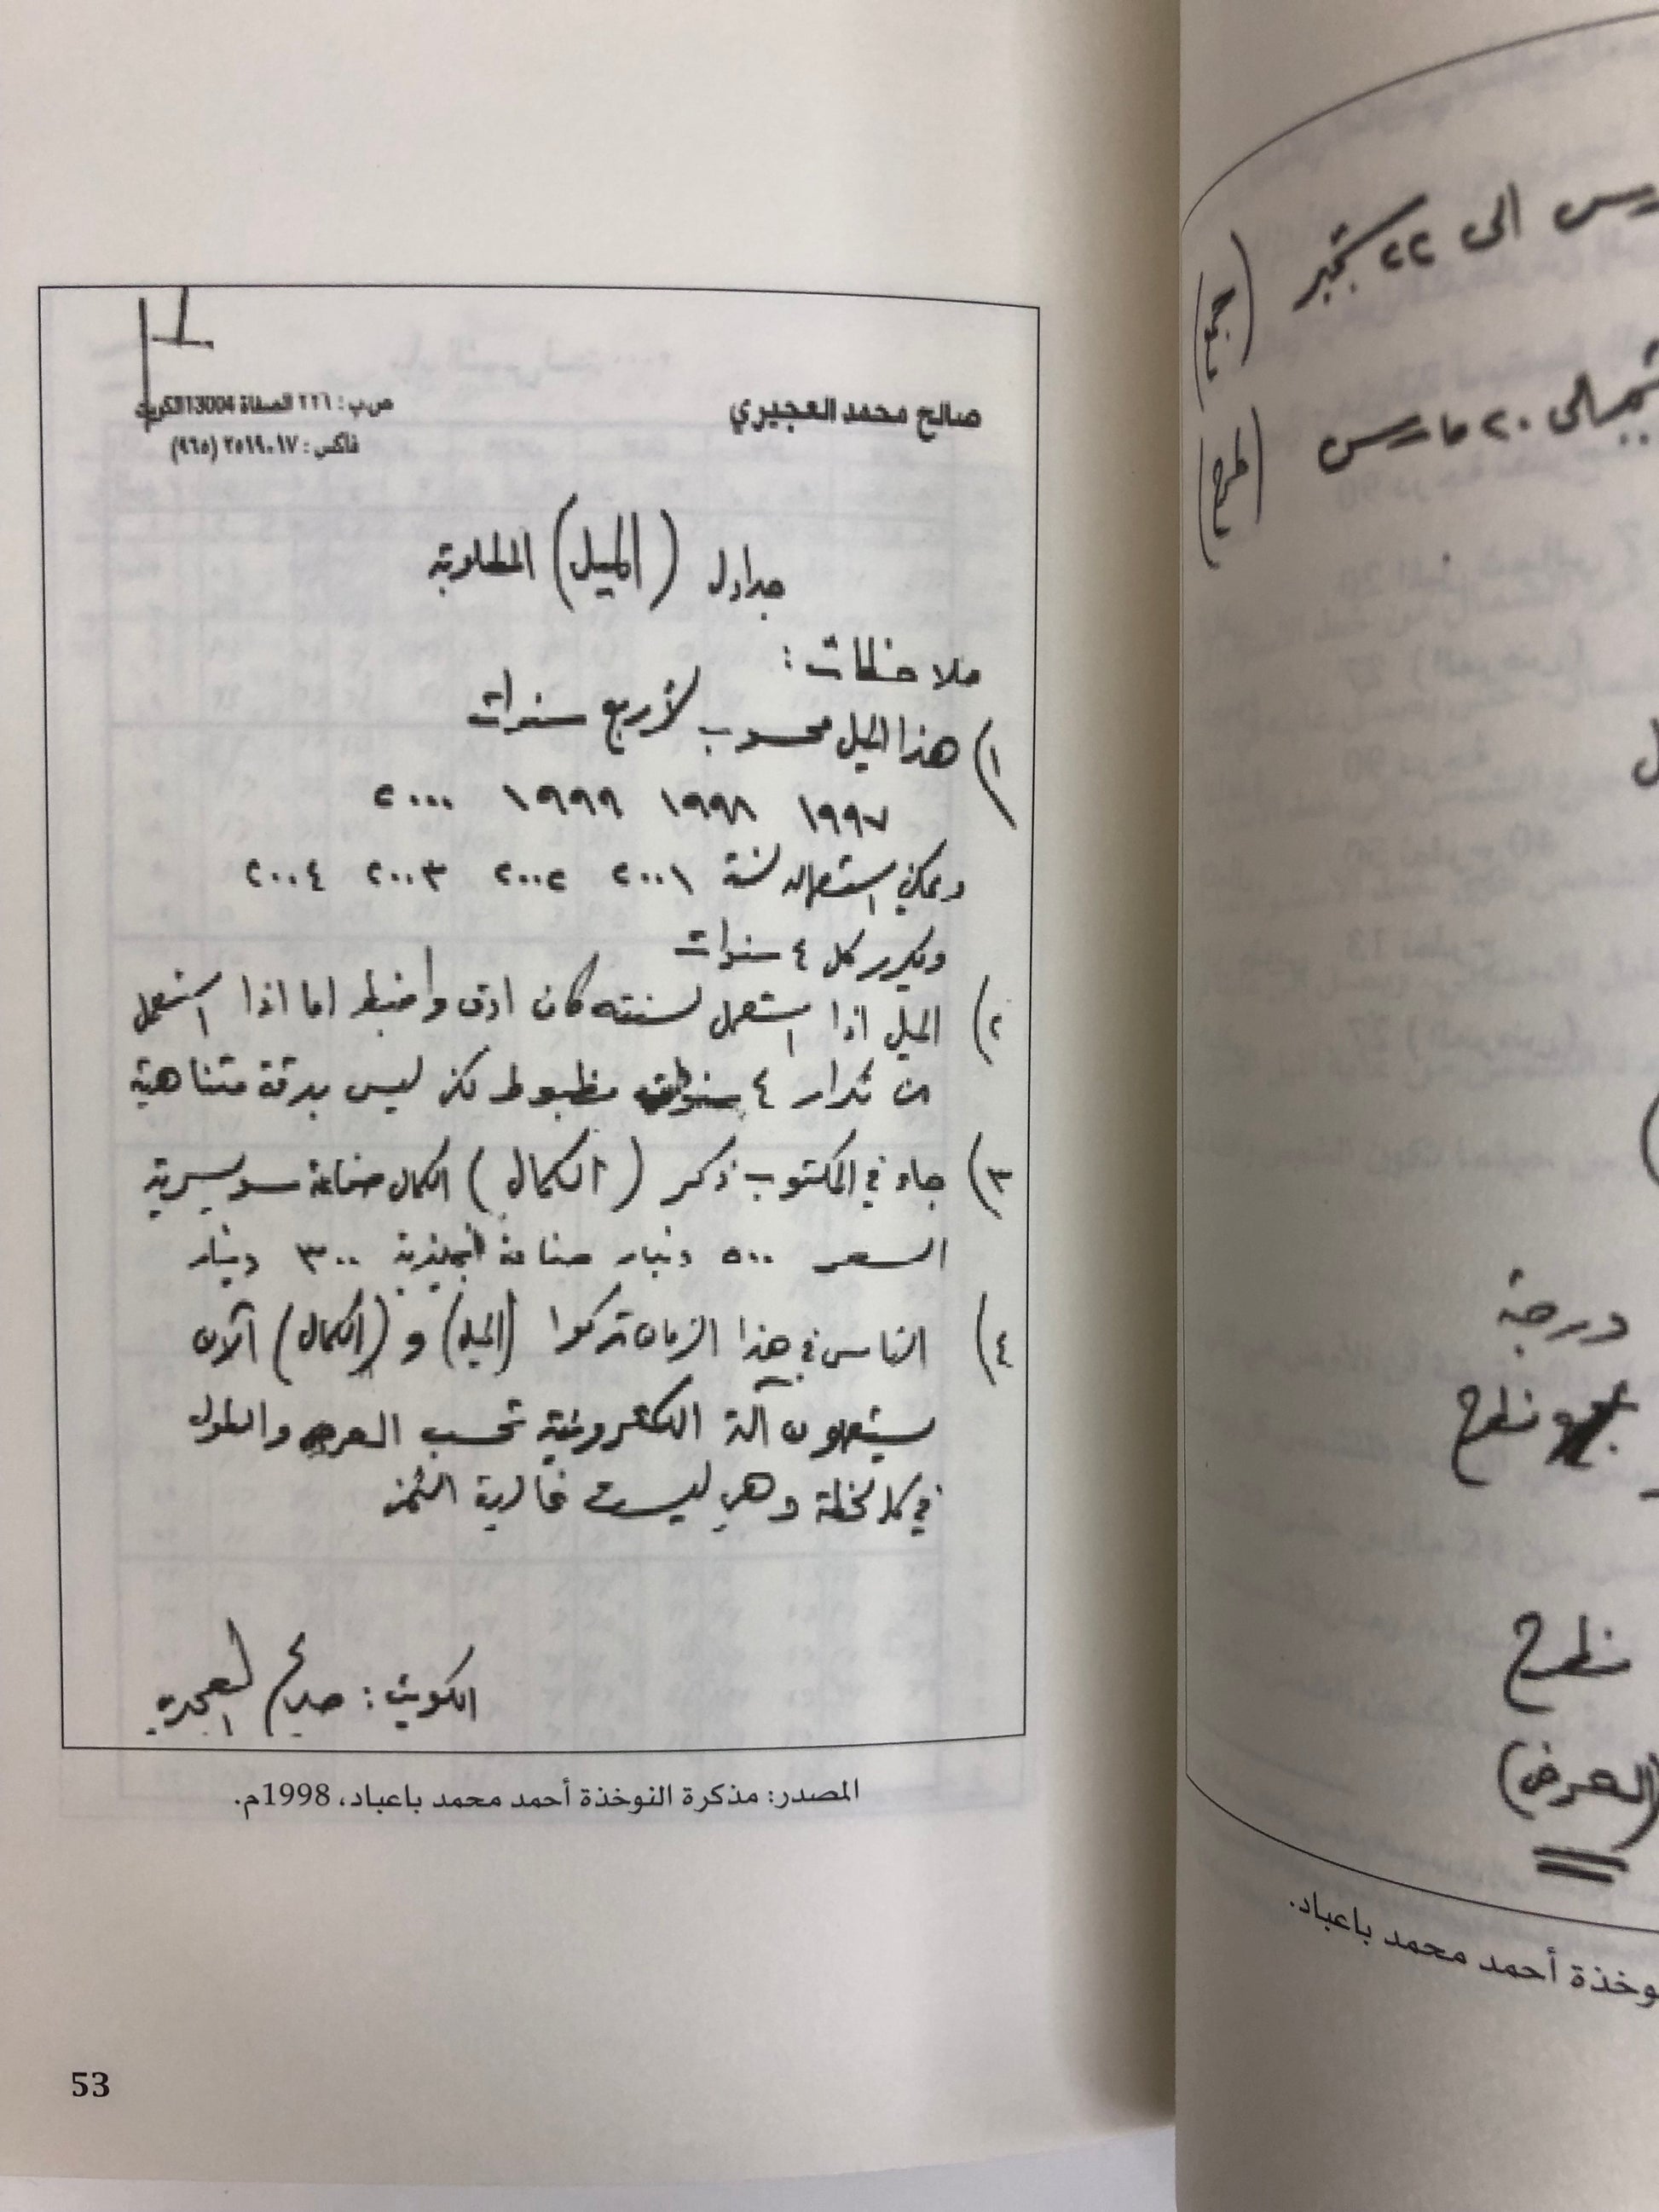 صالح محمد العجيري
ص.ب: ٢٢٦ الصفاة 13004 الكويت
فاكس: ٢٥١٩٠١٧ (٩٦٥)
جداول (الميل) المطلوبة
ملاحظات:
١) هذا الميل محسوب لأربع سنوات
١٩٩٧ ١٩٩٨ ١٩٩٩ ٢٠٠٠
ويمكن استعماله لسنة ٢٠٠١ ٢٠٠٢ ٢٠٠٣ ٢٠٠٤
ويكرر كل ٤ سنوات
٢) الميل اذا استعمل لسنته كان ادق واضبط اما اذا استعمل
من تكرار ٤ سنوات مظبوط لكن ليس بدقة متناهية
٣) جاء في المكتوب ذكر (الكمال) الكمال صناعة سويسرية
السعر ٥٠٠ دينار صناعة انجليزية ٣٠٠ دينار
٤) الناس في هذا الزمان تركوا (الميل) و (الكمال) الآن
يستعملون آلة الكترونية تحسب العرض والطول
في كل لحظة وهي ليست غالية الثمن
الكويت: صالح العجيري
المصدر: مذكرة النوخذة أحمد محمد باعباد، 1998م.
53
الى ٢٢ سبتمبر
٢٠ مارس
درجة
نطرح
نطرح
(العرض)
وخذة أحمد محمد باعباد.